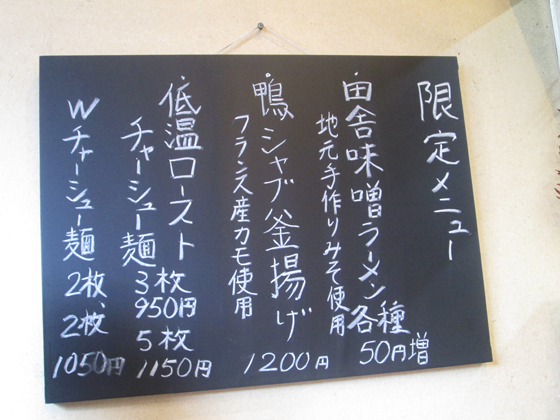 限定メニュー
田舎味噌ラーメン各種
50円増
地元手作りみそ使用
鴨シャブ釜揚げ
フランス産カモ使用
1200円
低温ロースト
チャーシュー麺
3枚
950円
5枚
1150円
Wチャーシュー麺
2枚、
2枚
1050円